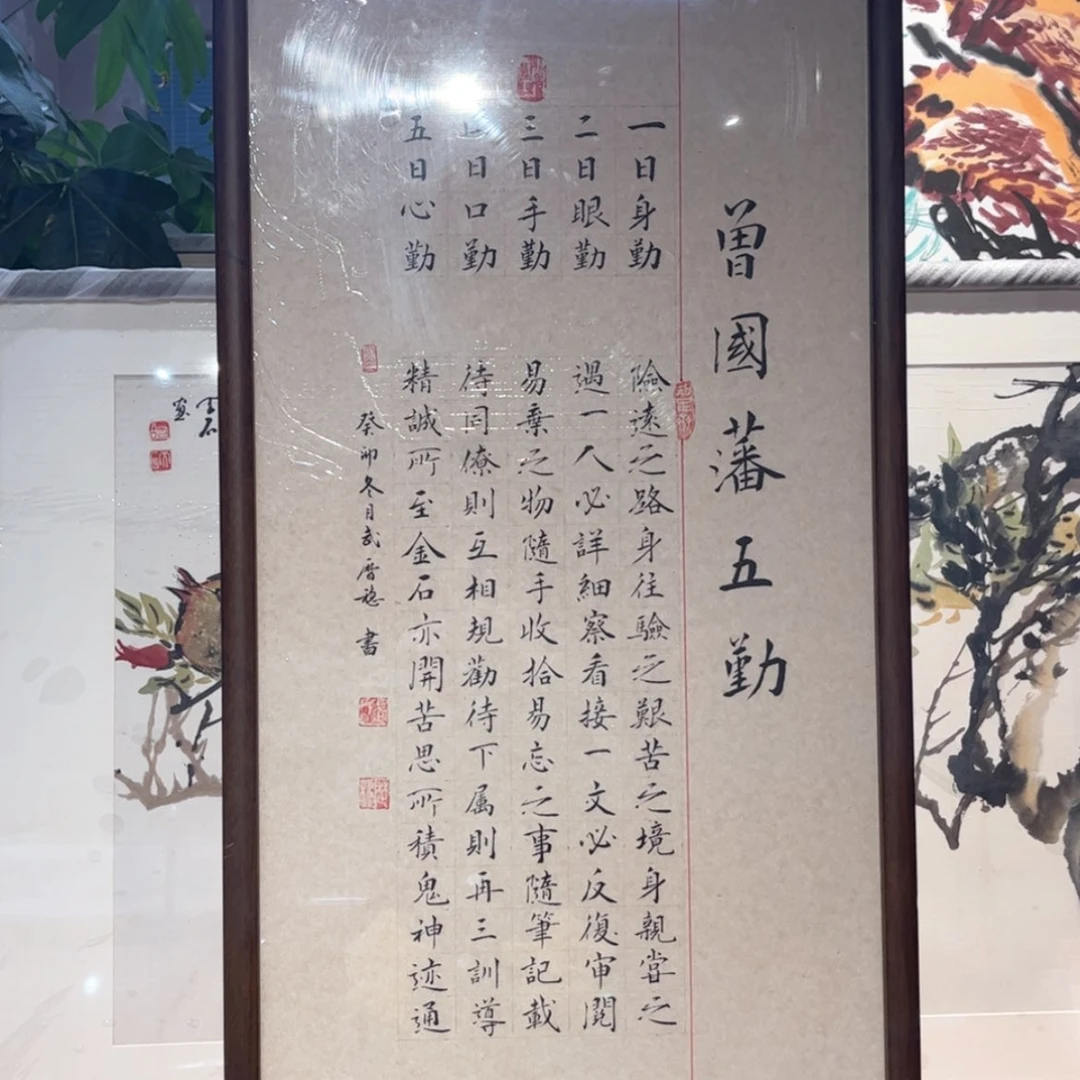 曾國藩五勤
一曰身勤
險遠之路身往驗之艱苦之境身親嘗之
二曰眼勤
遇一人必詳細察看接一文必反復审閱
三曰手勤
易棄之物隨手收拾易忘之事隨筆記載
四曰口勤
待同僚則互相規勸待下属則再三訓導
五曰心勤
精誠所至金石亦開苦思所積鬼神迹通
癸卯冬月武 書